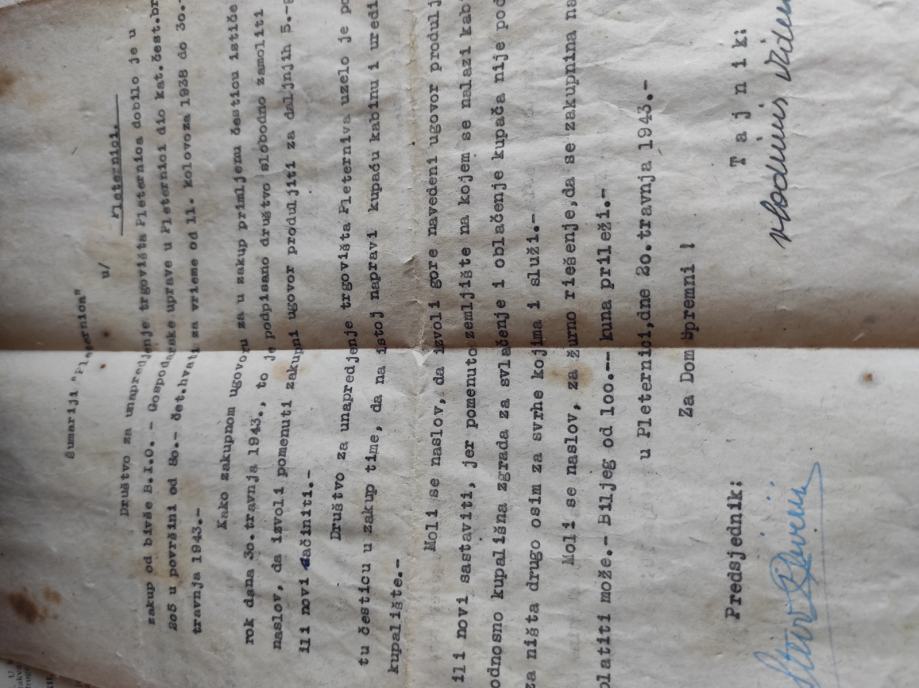 Šumariji "Pleternica"
u/
Pleternici.
Društvo za unapredjenje trgovišta Pleternica dobilo je u
zakup od bivše B.I.O. - Gospodarske uprave u Pleternici dio kat.čest.br
205 u površini od 80.- čet.hvati za vrieme od 11. kolovoza 1938 do 30.-
travnja 1943.-
Kako zakupnom ugovoru za u zakup primljemu česticu ističe
rok dana 30.travnja 1943., to je podpisano društvo slobodno zamoliti
naslov, da izvoli pomenuti zakupni ugovor produljiti za daljnjih 5.-
ili novi začiniti.-
Društvo za unapredjenje trgovišta Pleterniva uzelo je
tu česticu u zakup time, da na istoj napravi kupaću kabinu i uredi
kupalište.-
Moli se naslov, da izvoli gore navedeni ugovor
ili novi sastaviti, jer pomenuto zemljište na kojem se nalazi
odnosno kupališna zgrada za svlačenje i oblačenje kupača nije
za ništa drugo osim za svrhe kojima i služi.-
Moli se naslov, za žurno riešenje,da se zakupnina
platiti može.- Biljeg od 100.-- kuna prileži.-
u Pleternici,dne 20.travnja 1943.-
Za Dom Spremni !
Predsjednik:
T a j n i k: